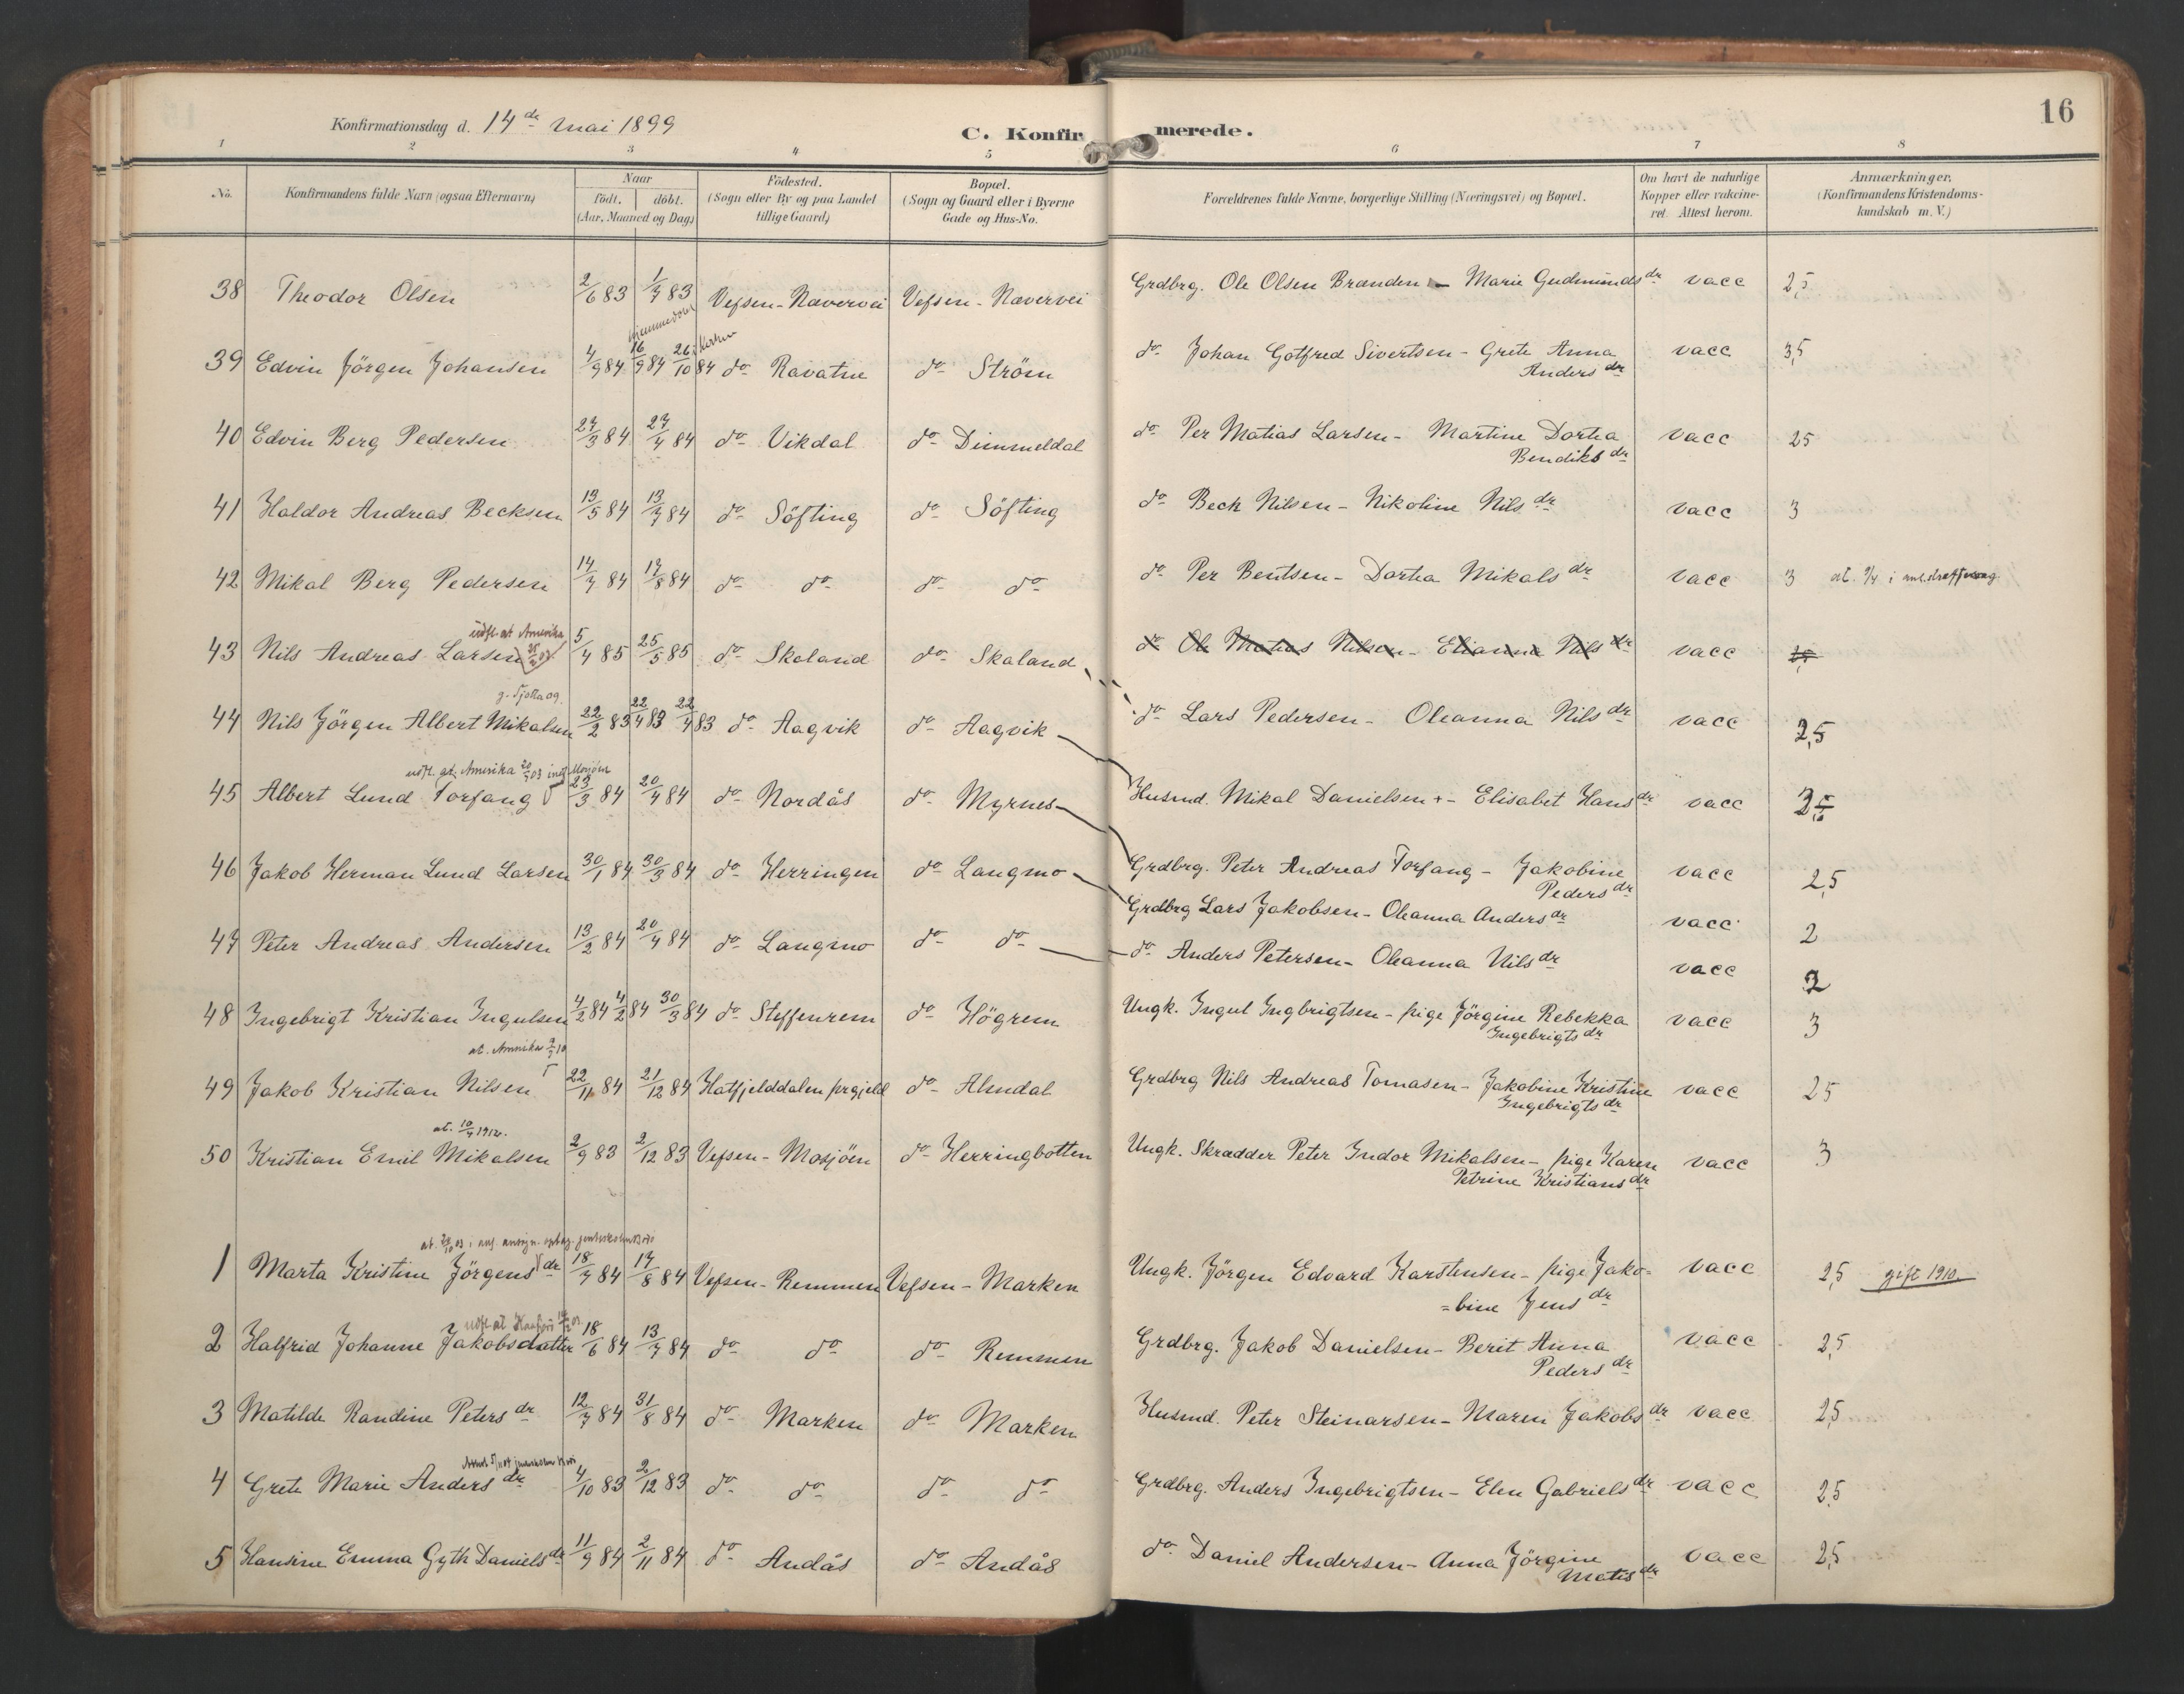 16
Konfirmationsdag d. 14de Mai 1899
C. Konfirmerede.
1 2 3 4 5 6 7 8
No. Konfirmandens fulde Navn (ogsaa Efternavn) Naar födt. döbt. (Aar, Maaned og Dag) Födested. (Sogn eller By og paa Landet tillige Gaard) Bopæl. (Sogn og Gaard eller i Byerne Gade og Hus-No. Forældrenes fulde Navne, borgerlige Stilling (Næringsvei) og Bopæl. Om havt de naturlige Kopper eller vakcineret. Attest herom. Anmærkninger, (Konfirmandens Kristendomskundskab m. V.)
38 Theodor Olsen 2/6 83 1/7 83 Vefsen-Nævervei Vefsen-Nævervei Grdbrg. Ole Olsen Brænden - Marie Gudmundsdr vacc 2,5
hjemmedöbt kirken
39 Edvin Jörgen Johansen 4/9 84 16/9 84 26/10 84 do Ravatne do Ström do Johan Gotfred Sivertsen - Grete Anna vacc 3,5
Andersdr
40 Edvin Berg Pedersen 27/3 84 27/4 84 do Vikdal do Dimmeldal do Per Matias Larsen - Martine Dortea vacc 25
Bendiksdr
41 Haldor Andreas Becksen 13/5 84 13/7 84 do Söfting do Söfting do Beck Nilsen - Nikoline Nilsdr vacc 3
42 Mikal Berg Pedersen 14/7 84 17/8 84 do do do do do Per Bentsen - Dortea Mikalsdr vacc 3 at. 9/4 i
udfl. at Amerika
43 Nils Andreas Larsen 5/4 85 25/5 85 do Skaland do Skaland do Ole Matias Nilsen - Elianna Nilsdr vacc 2,5
g. Tjötta og
44 Nils Jörgen Albert Mikalsen 22/2 83 22/4 83 22/4 83 do Aagvik do Aagvik do Lars Pedersen - Oleanna Nilsdr vacc 2,5
udfl. at. Amerika 20/7 03 Mosjöen
45 Albert Lund Torfang 23/3 84 20/4 84 do Nordås do Myrnes Husmd. Mikal Danielsen + - Elisabet Hansdr vacc 2,5
46 Jakob Herman Lund Larsen 30/1 84 30/3 84 do Herringen do Langmo Grdbrg. Peter Andreas Torfang - Jakobine vacc 2,5
Pedersdr
Grdbrg Lars Jakobsen - Oleanna Andersdr vacc 2
47 Peter Andreas Andersen 13/2 84 20/4 84 do Langmo do do do Anders Petersen - Oleanna Nilsdr vacc 2
48 Ingebrigt Kristian Ingulsen 4/2 84 4/2 84 30/3 84 do Steffenrem do Högrem Ungk. Ingul Ingbrigtsen - pige Jörgine Rebekka vacc 3
Ingebrigtsdr
at. Amerika 10
49 Jakob Kristian Nilsen 22/11 84 21/12 84 Hatfjelddalen prgjeld do Almdal Grdbrg Nils Andreas Tomasen - Jakobine Kristine vacc 25
Ingebrigtsdr
at. 10/4 1912.
50 Kristian Emil Mikalsen 2/9 83 2/12 83 Vefsen-Mosjöen do Herringbotten Ungk. Skrædder Peter Indor Mikalsen - pige Karen vacc 3
Petrine Kristiansdr
1 Marta Kristine Jörgensdr 18/7 84 17/8 84 Vefsen-Remmen Vefsen-Marken Ungk. Jörgen Edvard Karstensen - pige Jako= vacc 2,5 gift 1910.
=bine Jensdr
udfl. at
2 Halfrid Johanne Jakobsdatter 18/6 84 13/7 84 do do do Remmen Grdbrg. Jakob Danielsen - Berit Anna vacc 2,5
Pedersdr
3 Matilde Randine Petersdr 12/7 84 31/8 84 do Marken do Marken Husmd. Peter Steinarsen - Maren Jakobsdr vacc 2,5
4 Grete Marie Andersdr 4/10 83 2/12 83 do do do do Grdbrg. Anders Ingebrigtsen - Elen Gabrielsdr vacc 2,5
5 Hansine Emma Gyth Danielsdr 11/9 84 2/11 84 do Andås do Andås do Daniel Andersen - Anna Jörgine vacc 2,5
Matisdr